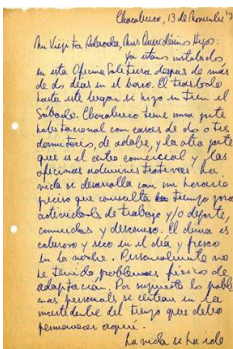 Chacabuco, 13 de Noviembre
Mi Viejita Adorada, Mis Queridísimos Hijos:
Ya estamos instalados
en esta Oficina Salitrera después de más
de dos días en el barco. El traslado
hasta este lugar se hizo en tren el
Sábado. Chacabuco tiene una parte
habitacional con casas de dos o tres
dormitorios, de adobe, y la otra parte
que es el centro comercial y las
oficinas administrativas. La
vida se desarrolla con un horario
preciso que consulta tiempo para
actividades de trabajo y/o deporte,
comidas y descanso. El clima es
caluroso y seco en el día y fresco
en la noche. Personalmente no
he tenido problemas físicos de
adaptación. Por supuesto los proble
mas personales se centran en la
incertidumbre del tiempo que debo
permanecer aquí.
La vida se ha